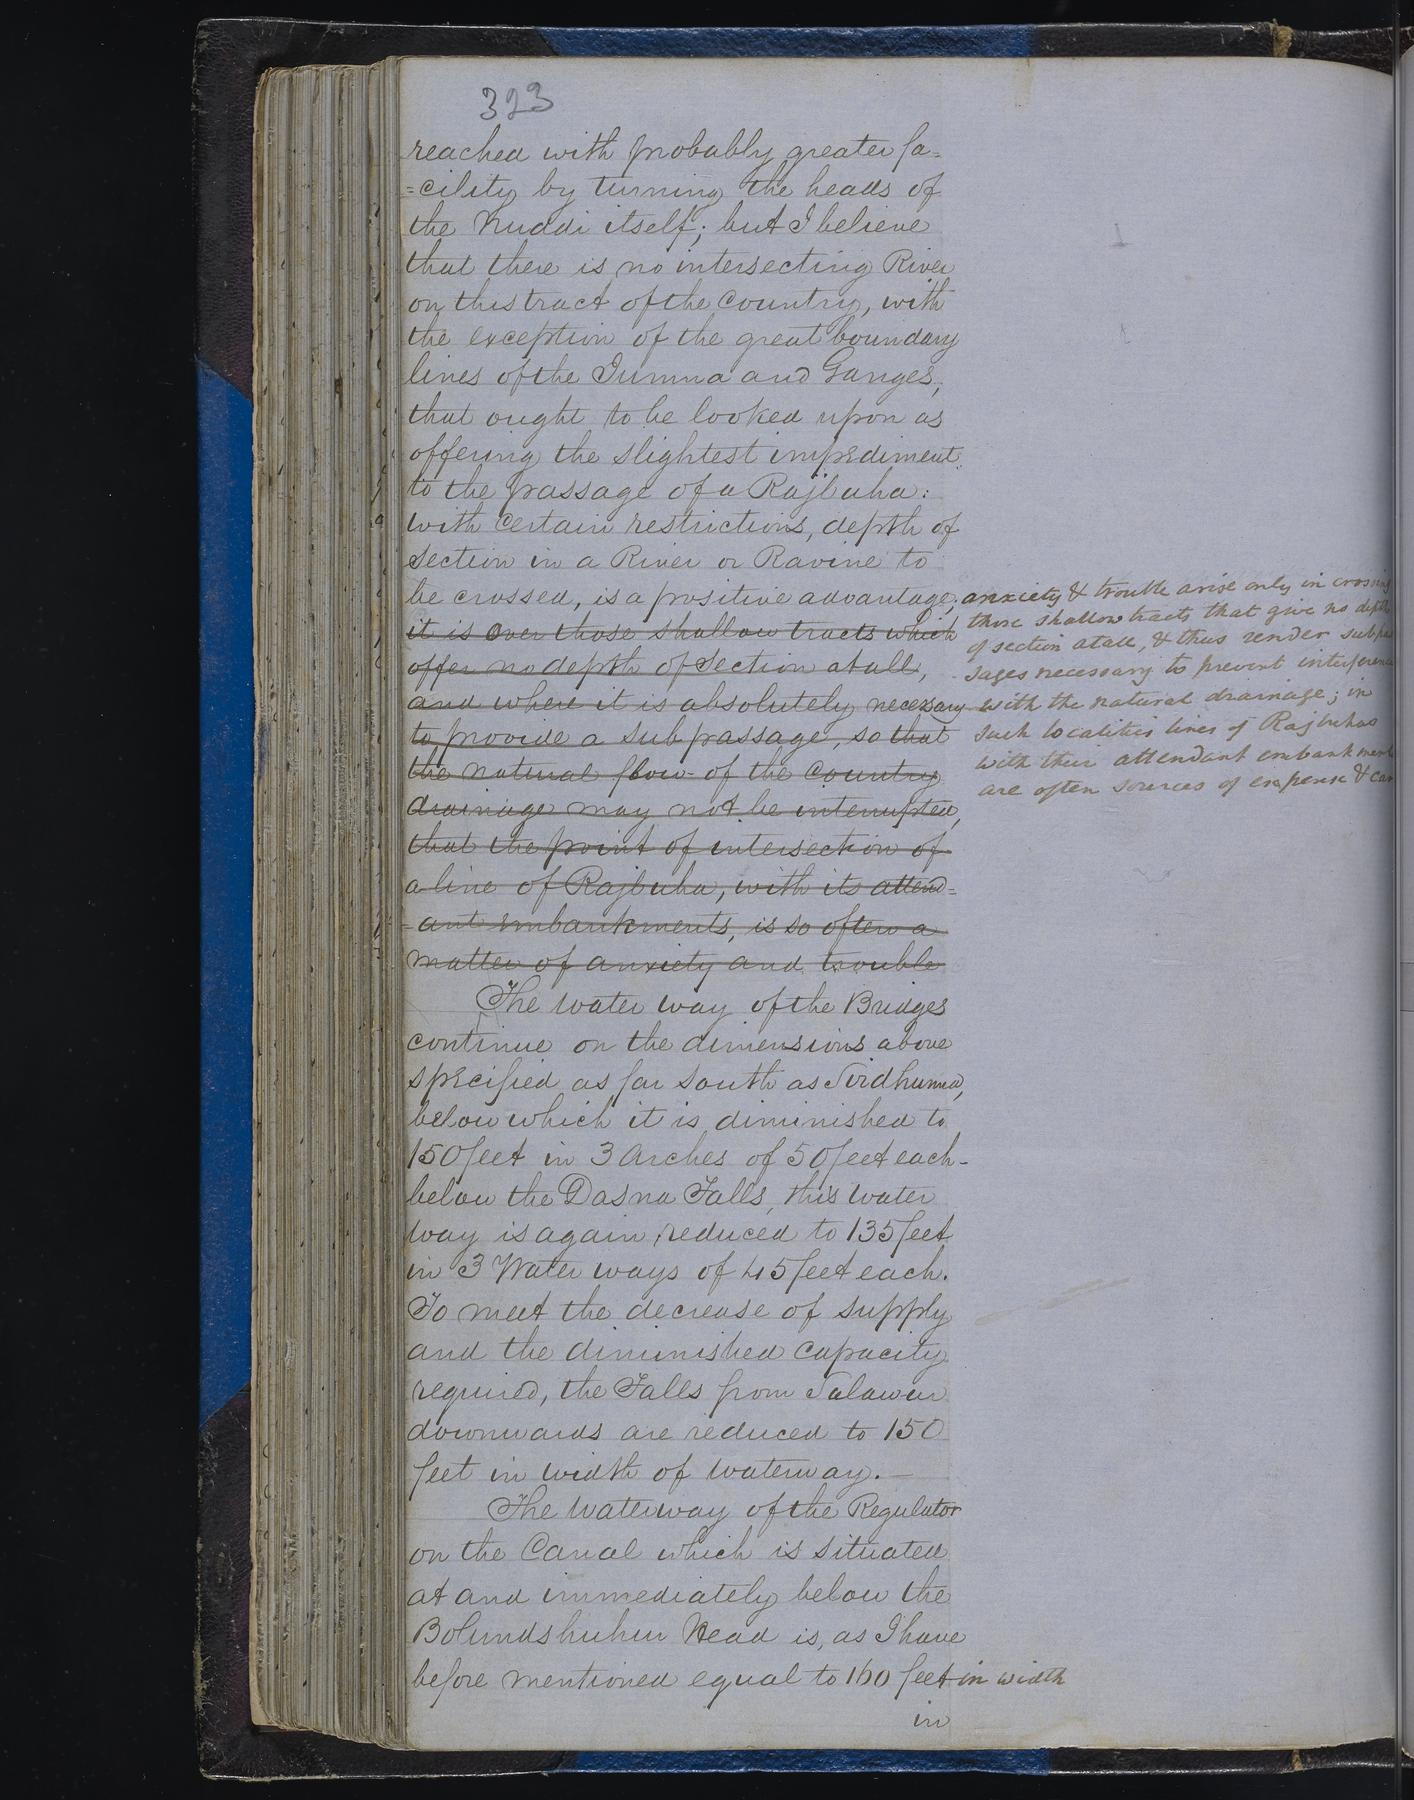 323
reached with probably greater fa-
=cility by turning the heads of
the Nuddi itself; but I believe
that there is no intersecting River
on this tract of the Country, with
the exception of the great boundary
lines of the Jumna and Ganges,
that ought to be looked upon as
offering the slightest impediment
to the passage of a Rajbuha:
with certain restrictions, depth of
section in a River or Ravine to
be crossed, is a positive advantage;
it is over those shallow tracts which
offer no depth of section at all,
and where it is absolutely necessary
to provide a sub passage, so that
the natural flow of the Country
drainage may not be interrupted,
that the point of intersection of
a line of Rajbuha, with its attend=
=ant embankments, is so often a
matter of anxiety and trouble
anxiety & trouble arise only in crossing
those shallow tracts that give no depth
of section atall, & thus render subpas
sages necessary to prevent interference
with the natural drainage; in
such localities lines of Rajbuhas
with their attendant embankments
are often sources of expense & care
The water way of the Bridges
continue on the dimensions above
specified as far south as Sirdhunna,
below which it is diminished to
150 feet in 3 Arches of 50 feet each-
below the Dasna Falls, this water
way is again reduced to 135 feet
in 3 Water ways of 45 feet each.
To meet the decrease of supply
and the diminished capacity
required, the Falls from Salawur
downwards are reduced to 150
feet in width of waterway. —
The waterway of the Regulator
on the Canal which is situated
at and immediately below the
Bolundshuhur Head is, as I have
before mentioned equal to 160 feet in width
in